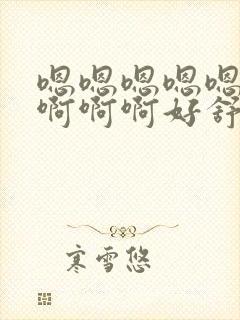 嗯嗯嗯嗯嗯
啊啊啊好舒
寒雪悠